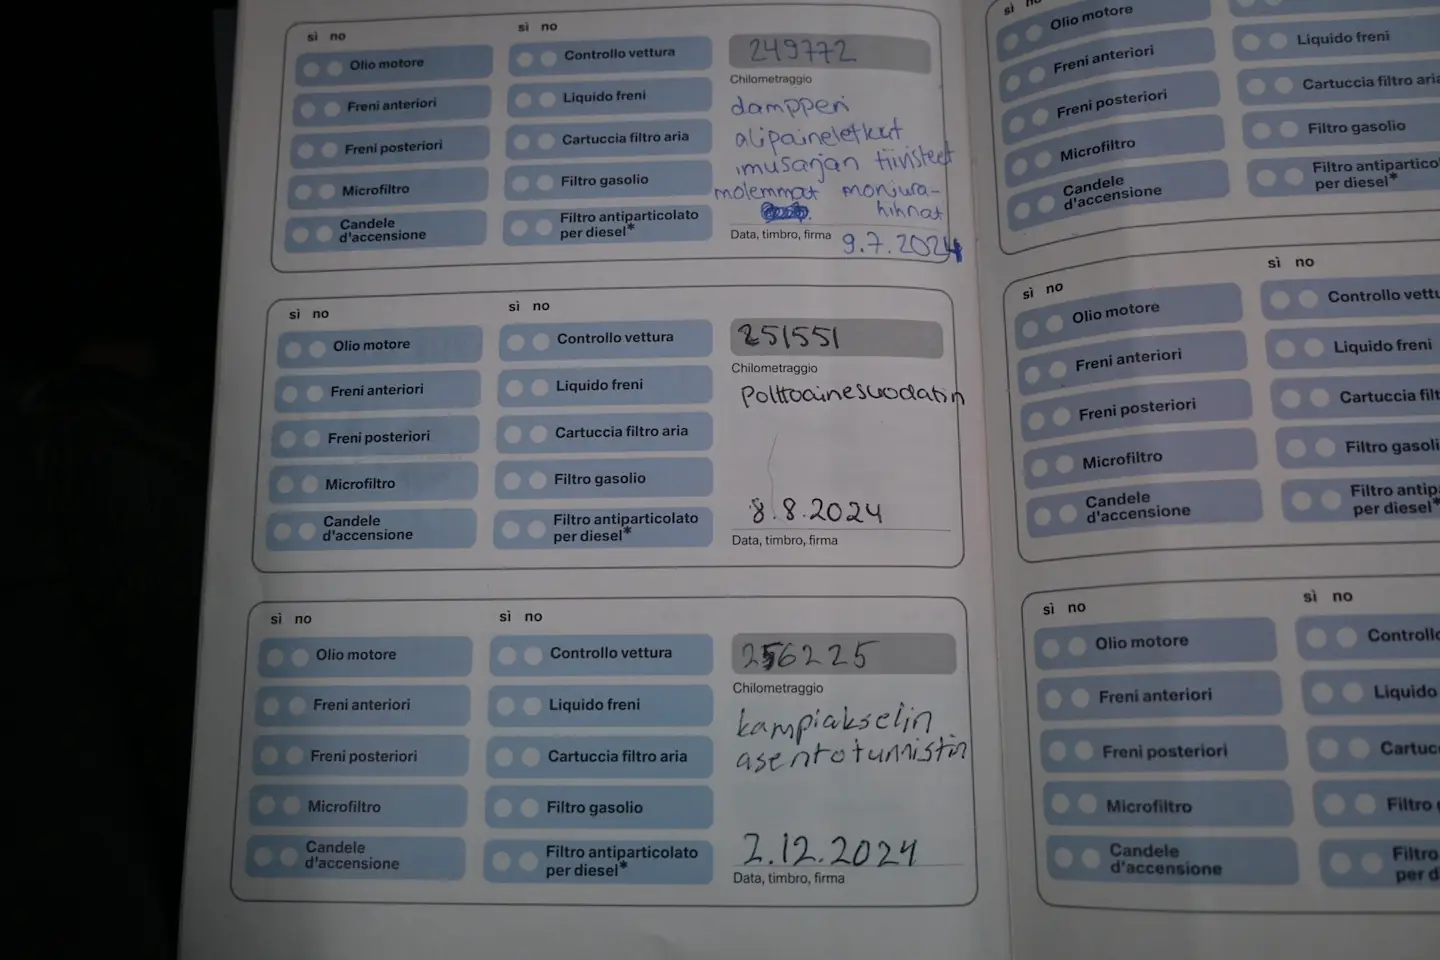 sì no
sì no
Olio motore
Controllo vettura
Freni anteriori
Liquido freni
Freni posteriori
Cartuccia filtro aria
Microfiltro
Filtro gasolio
Candele
d'accensione
Filtro antiparticolato
per diesel*
249772
Chilometraggio
dampperi
alipaineletkut
imusarjan tiivisteet
molemmat moniura-
hihnat
Data, timbro, firma 9.7.2024
sì no
sì no
Olio motore
Controllo vettura
Freni anteriori
Liquido freni
Freni posteriori
Cartuccia filtro aria
Microfiltro
Filtro gasolio
Candele
d'accensione
Filtro antiparticolato
per diesel*
251551
Chilometraggio
Polttoainesuodatin
8.8.2024
Data, timbro, firma
sì no
sì no
Olio motore
Controllo vettura
Freni anteriori
Liquido freni
Freni posteriori
Cartuccia filtro aria
Microfiltro
Filtro gasolio
Candele
d'accensione
Filtro antiparticolato
per diesel*
256225
Chilometraggio
kampiakselin
asentotunnistin
2.12.2024
Data, timbro, firma
sì no
Olio motore
Freni anteriori
Liquido freni
Freni posteriori
Cartuccia filtro aria
Microfiltro
Filtro gasolio
Candele
d'accensione
Filtro antipartico
per diesel*
sì no
sì no
Olio motore
Controllo vettu
Freni anteriori
Liquido freni
Freni posteriori
Cartuccia filt
Microfiltro
Filtro gasoli
Candele
d'accensione
Filtro antip
per diesel*
sì no
sì no
Olio motore
Controllo
Freni anteriori
Liquido
Freni posteriori
Cartuc
Microfiltro
Filtro
Candele
d'accensione
Filtro
per d